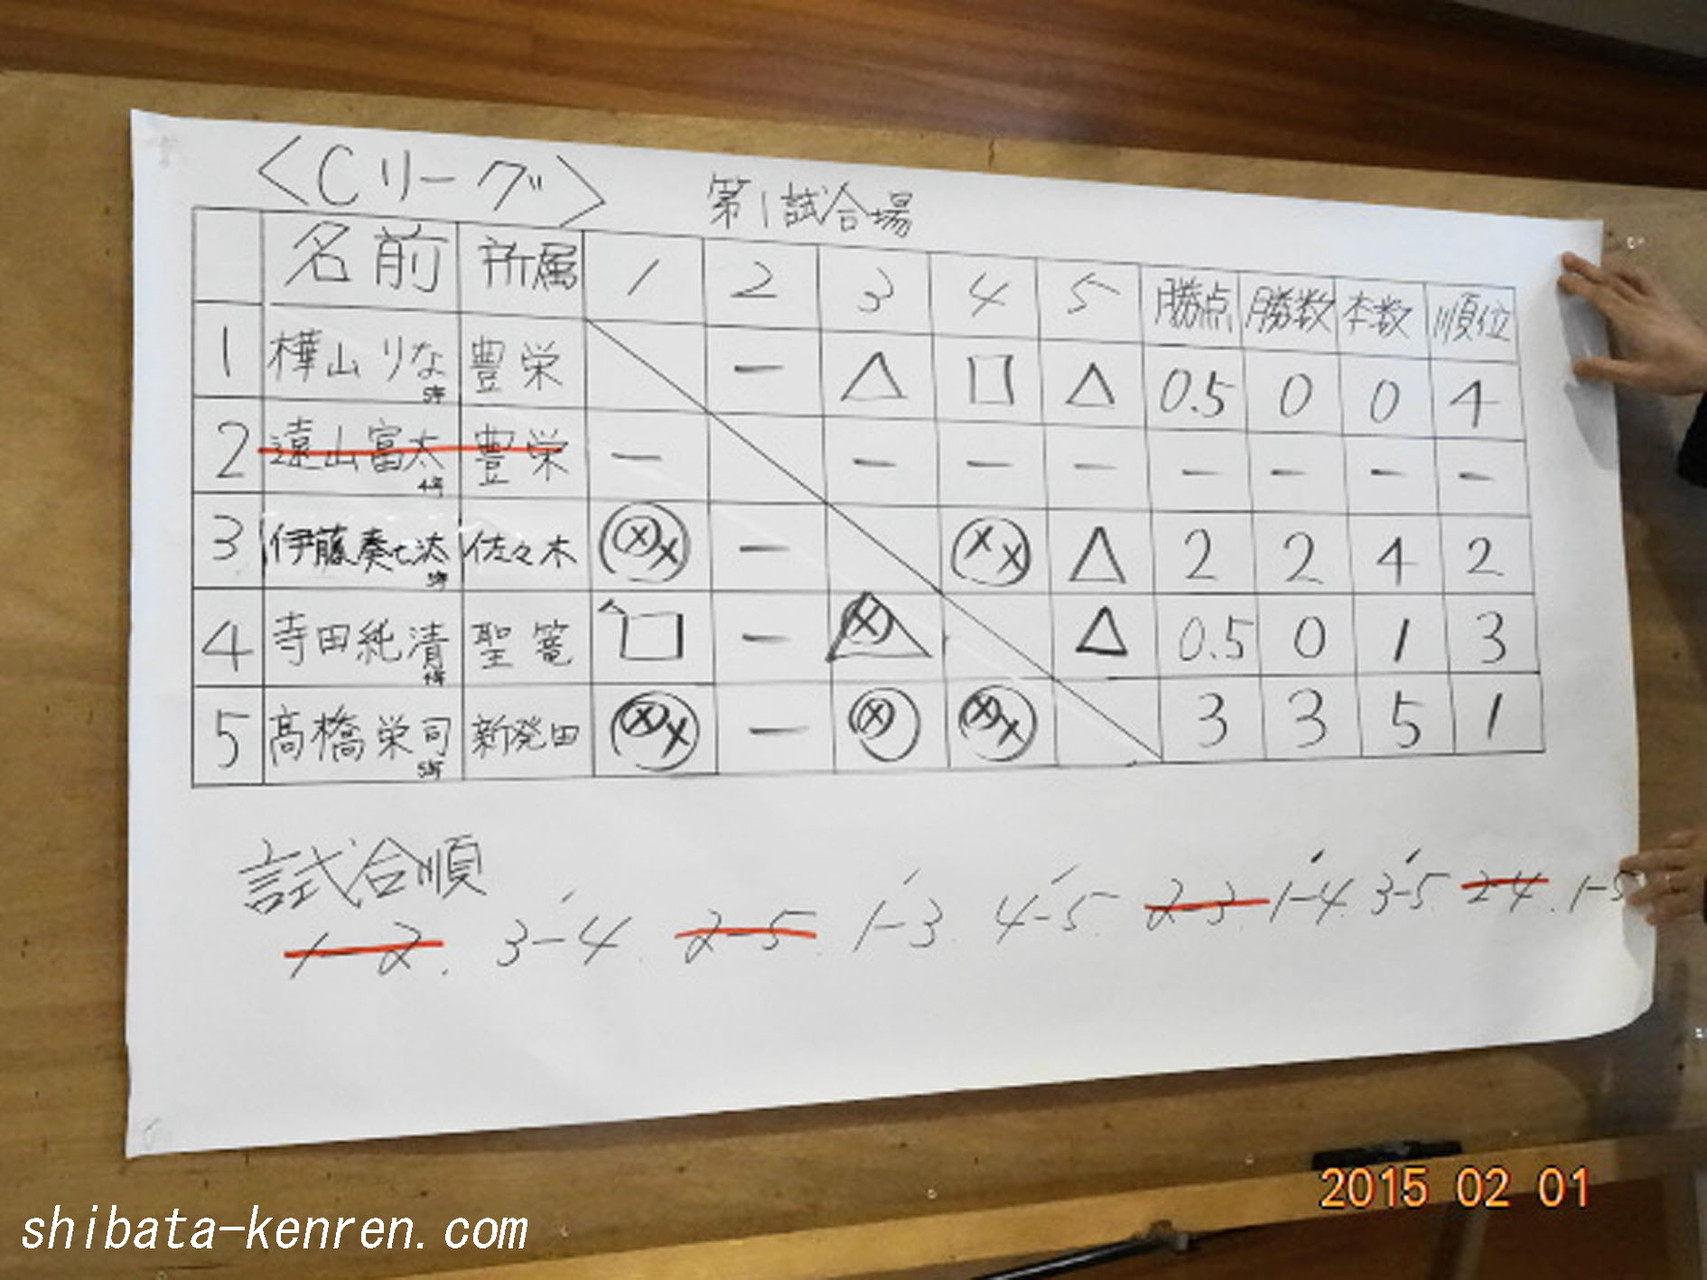 <Cリーグ> 第1試合場
名前 所属 1 2 3 4 5 勝点 勝数 本数 順位
1 樺山りな 5年 豊栄 － △ □ △ 0.5 0 0 4
2 遠山富太 4年 豊栄 － － － － － － － －
3 伊藤奏七汰 5年 佐々木 ⓧx － xx △ 2 2 4 2
4 寺田純清 4年 聖篭 □ － ⓧ △ 0.5 0 1 3
5 髙橋栄司 5年 新発田 ⓧx － ⓧ ⓧx 3 3 5 1
試合順
1-2. 3-4. 2-5. 1-3. 4-5. 2-3. 1-4. 3-5. 2-4. 1-5
2015 02 01
shibata-kenren.com